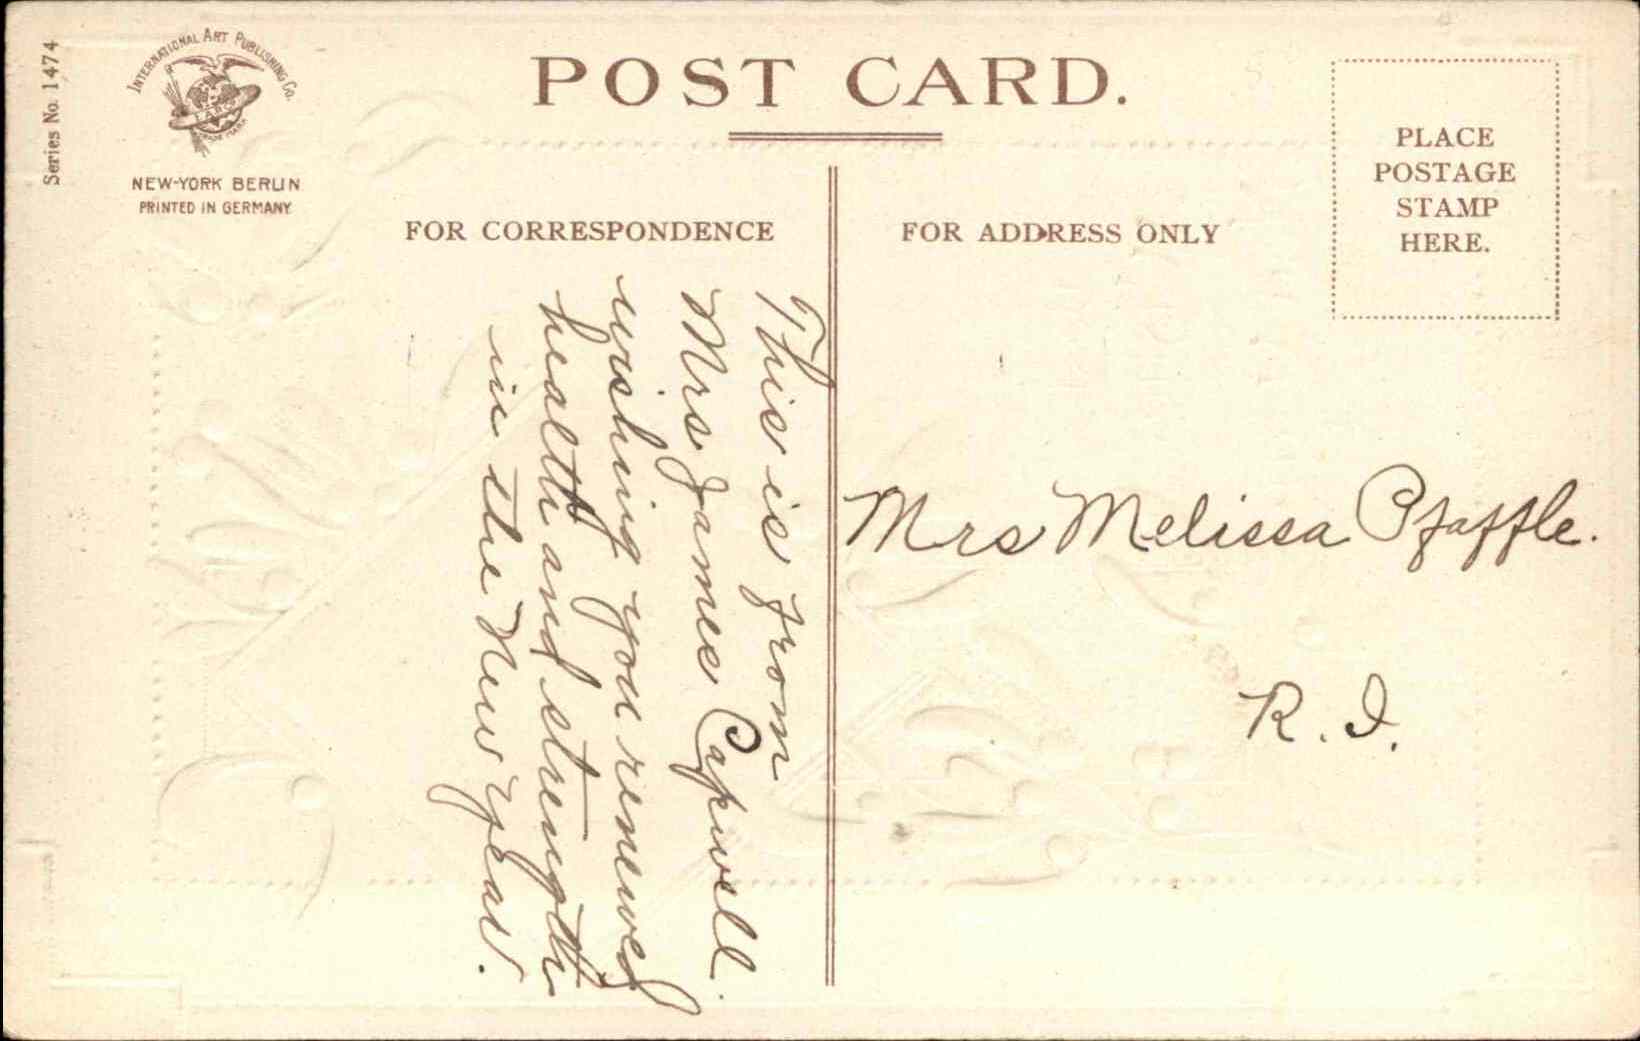 Series No. 1474
INTERNATIONAL ART PUBLISHING Co.
NEW-YORK BERLIN
PRINTED IN GERMANY
POST CARD.
PLACE
POSTAGE
STAMP
HERE.
FOR CORRESPONDENCE
FOR ADDRESS ONLY
This is from
Mrs James Capwell.
wishing you renewed
health and strength
in the New Year.
Mrs Melissa Pfaffle.
R. I.